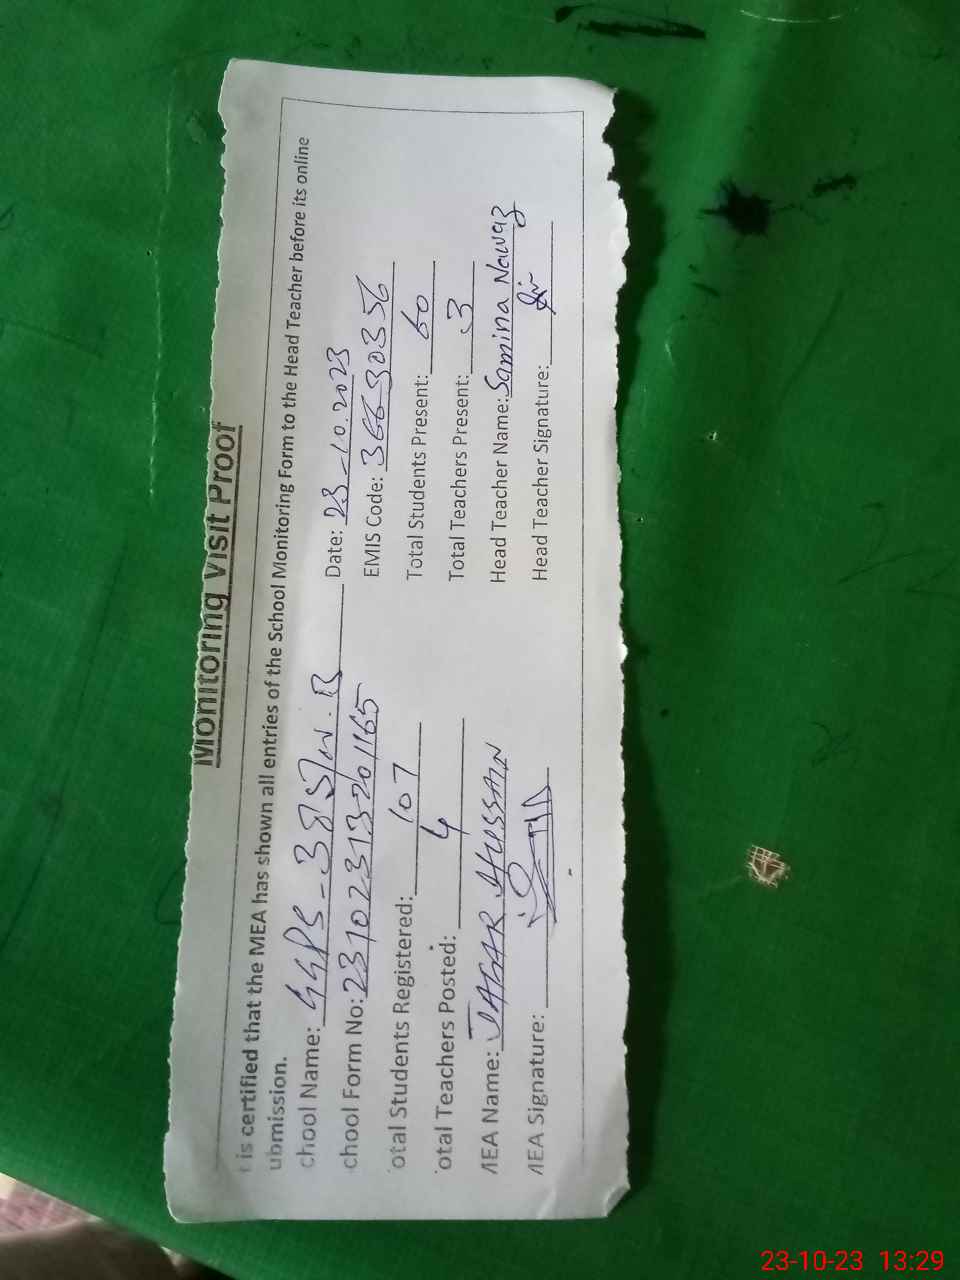 Monitoring Visit Proof
t is certified that the MEA has shown all entries of the School Monitoring Form to the Head Teacher before its online
ubmission.
chool Name: GGPS-385/W.B Date: 23-10.2023
chool Form No: 23102313201165 EMIS Code: 36630356
otal Students Registered: 107 Total Students Present: 60
otal Teachers Posted: 4 Total Teachers Present: 3
MEA Name: JAGAR HUSSAIN Head Teacher Name: Samina Nawaz
MEA Signature: Head Teacher Signature:
23-10-23 13:29